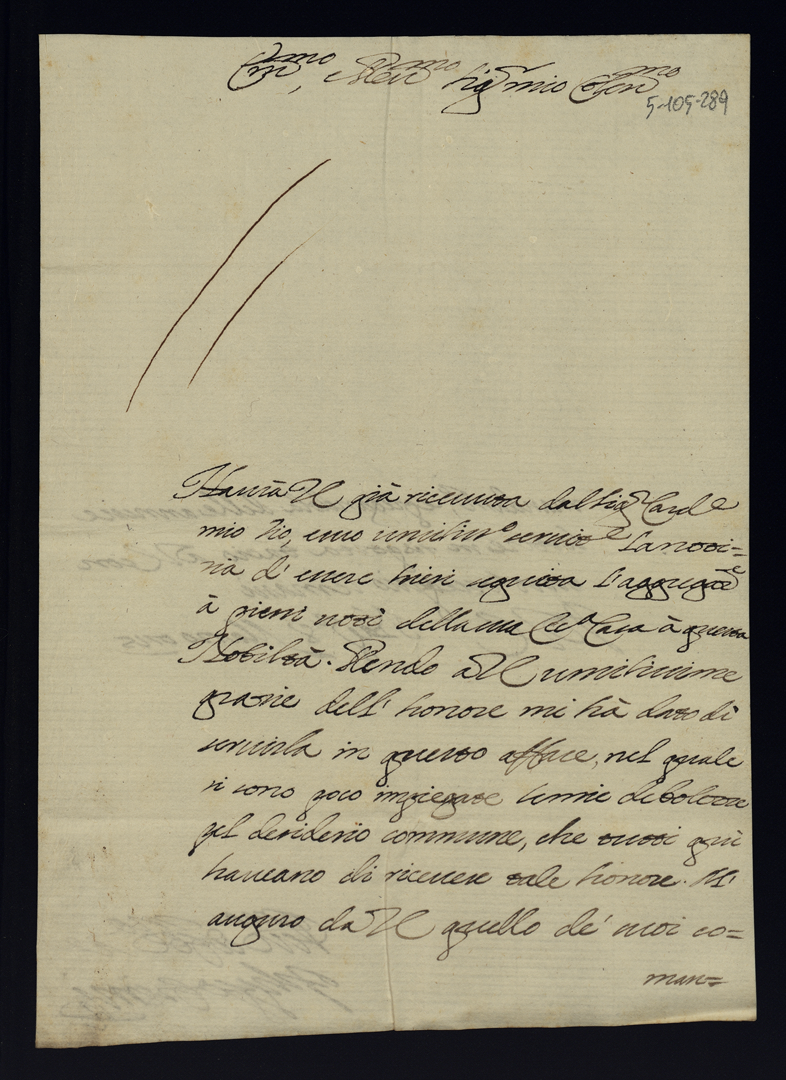 Em.mo, e Rev.mo Sig.r mio Oss.mo
5-105-289
Haurà V E già riceuuta dal Sig.r Card.e
mio Zio, suo umiliss.o seruit.e la noti=
tia d' essere hieri seguita l'aggregat.e
à pieni uoti della sua Ecc.a Casa à questa
Nobiltà. Rendo a V E umilissime
gratie dell' honore mi hà dato di
seruirla in questo affare, nel quale
si sono poco impiegate le mie debolezze
pel desiderio commune, che tutti quì
haueano di riceuere tale honore. M'
auguro da V E quello de' suoi co=
man=